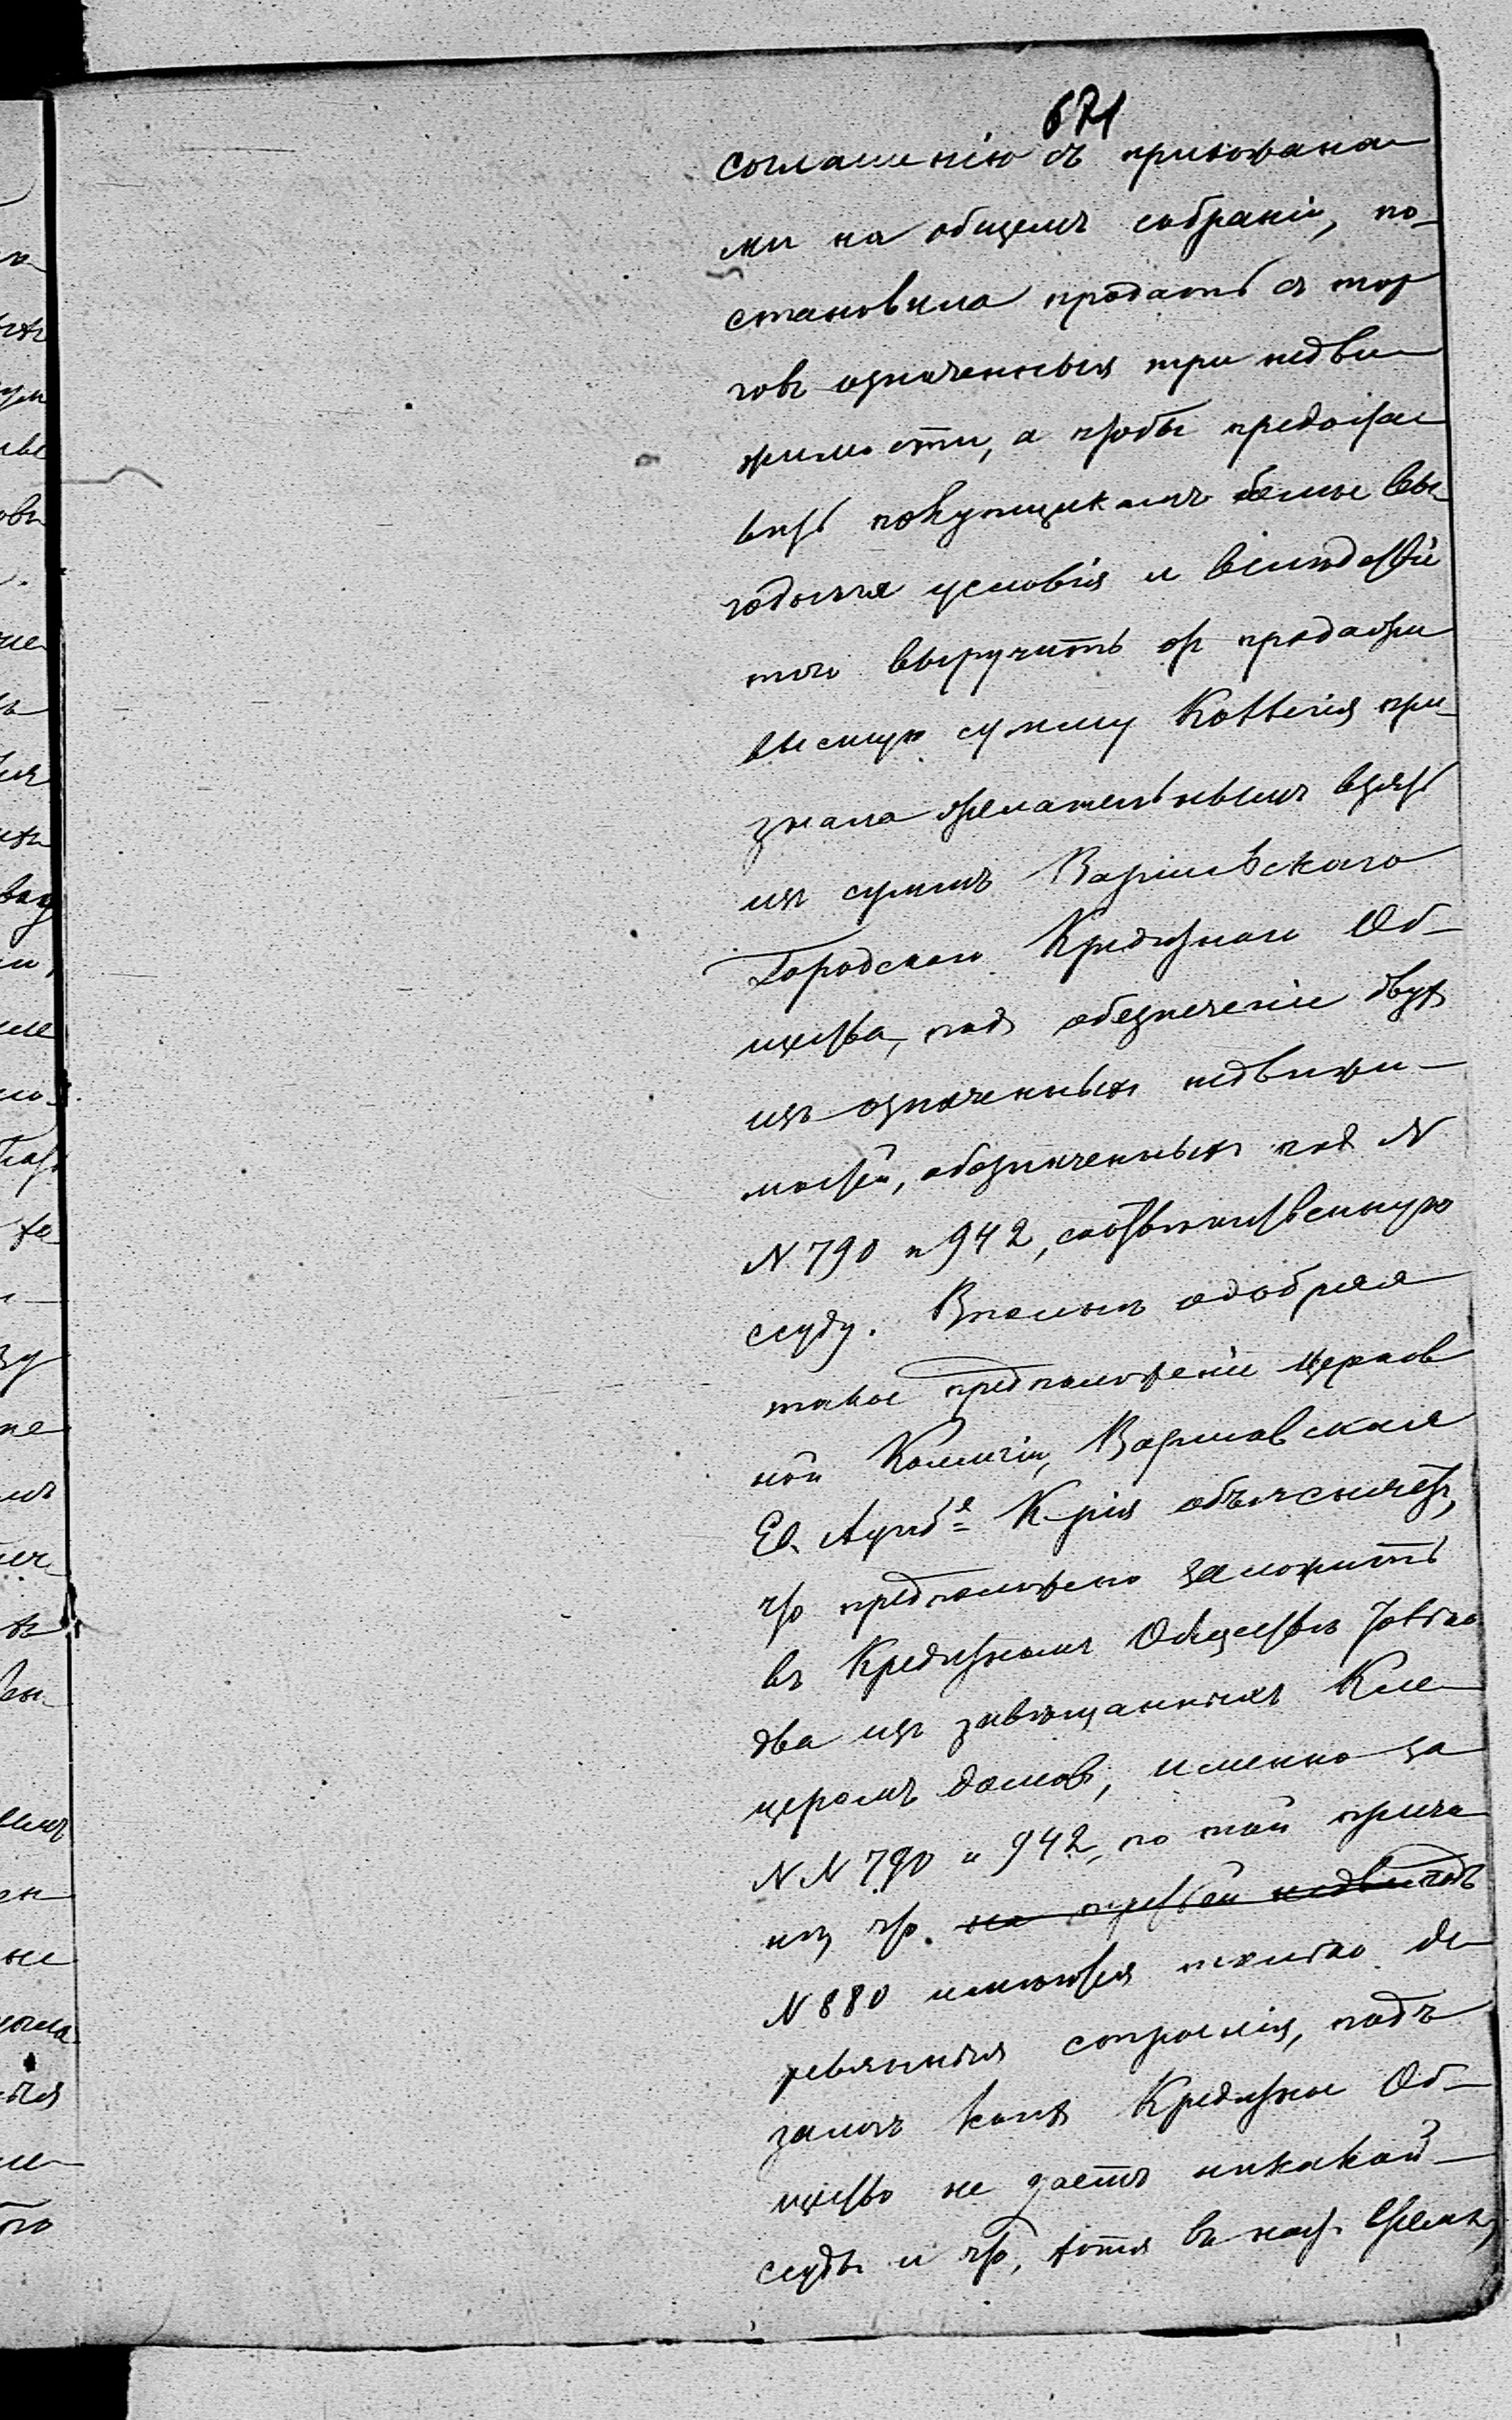 671
соглашенію съ прихожана-
ми на общемъ собраніи, по-
становила продать съ тор-
говъ означенныя три недви-
жимости, а чтобы предоста-
вить покупщикамъ болѣе вы-
годныя условія и вслѣдствіе
того выручить отъ продажи
высшую сумму Коллегія при-
знала желательнымъ взять
изъ суммъ Варшавскаго
Городскаго Кредитнаго Об-
щества, подъ обезпеченіе двухъ
изъ означенныхъ недвижи-
мостей, обозначенныхъ под N
N 790 и 942, соотвѣтственную
ссуду. Вполнѣ одобряя
такое предположеніе Церков
ной Коллегіи, Варшавская
Ев. Аугсб.я К-рія объясняетъ,
что предположено заложить
въ Кредитномъ Обществѣ только
два изъ завѣщанныхъ Кле-
церомъ домовъ, именно за
NN 790 и 942, по той причи
нѣ, что на третьей недви подъ
N 880 имѣются только де-
ревянныя строенія, подъ
залогъ коихъ Кредитное Об-
щество не даетъ никакой
ссуды и что, хотя въ наст. время,